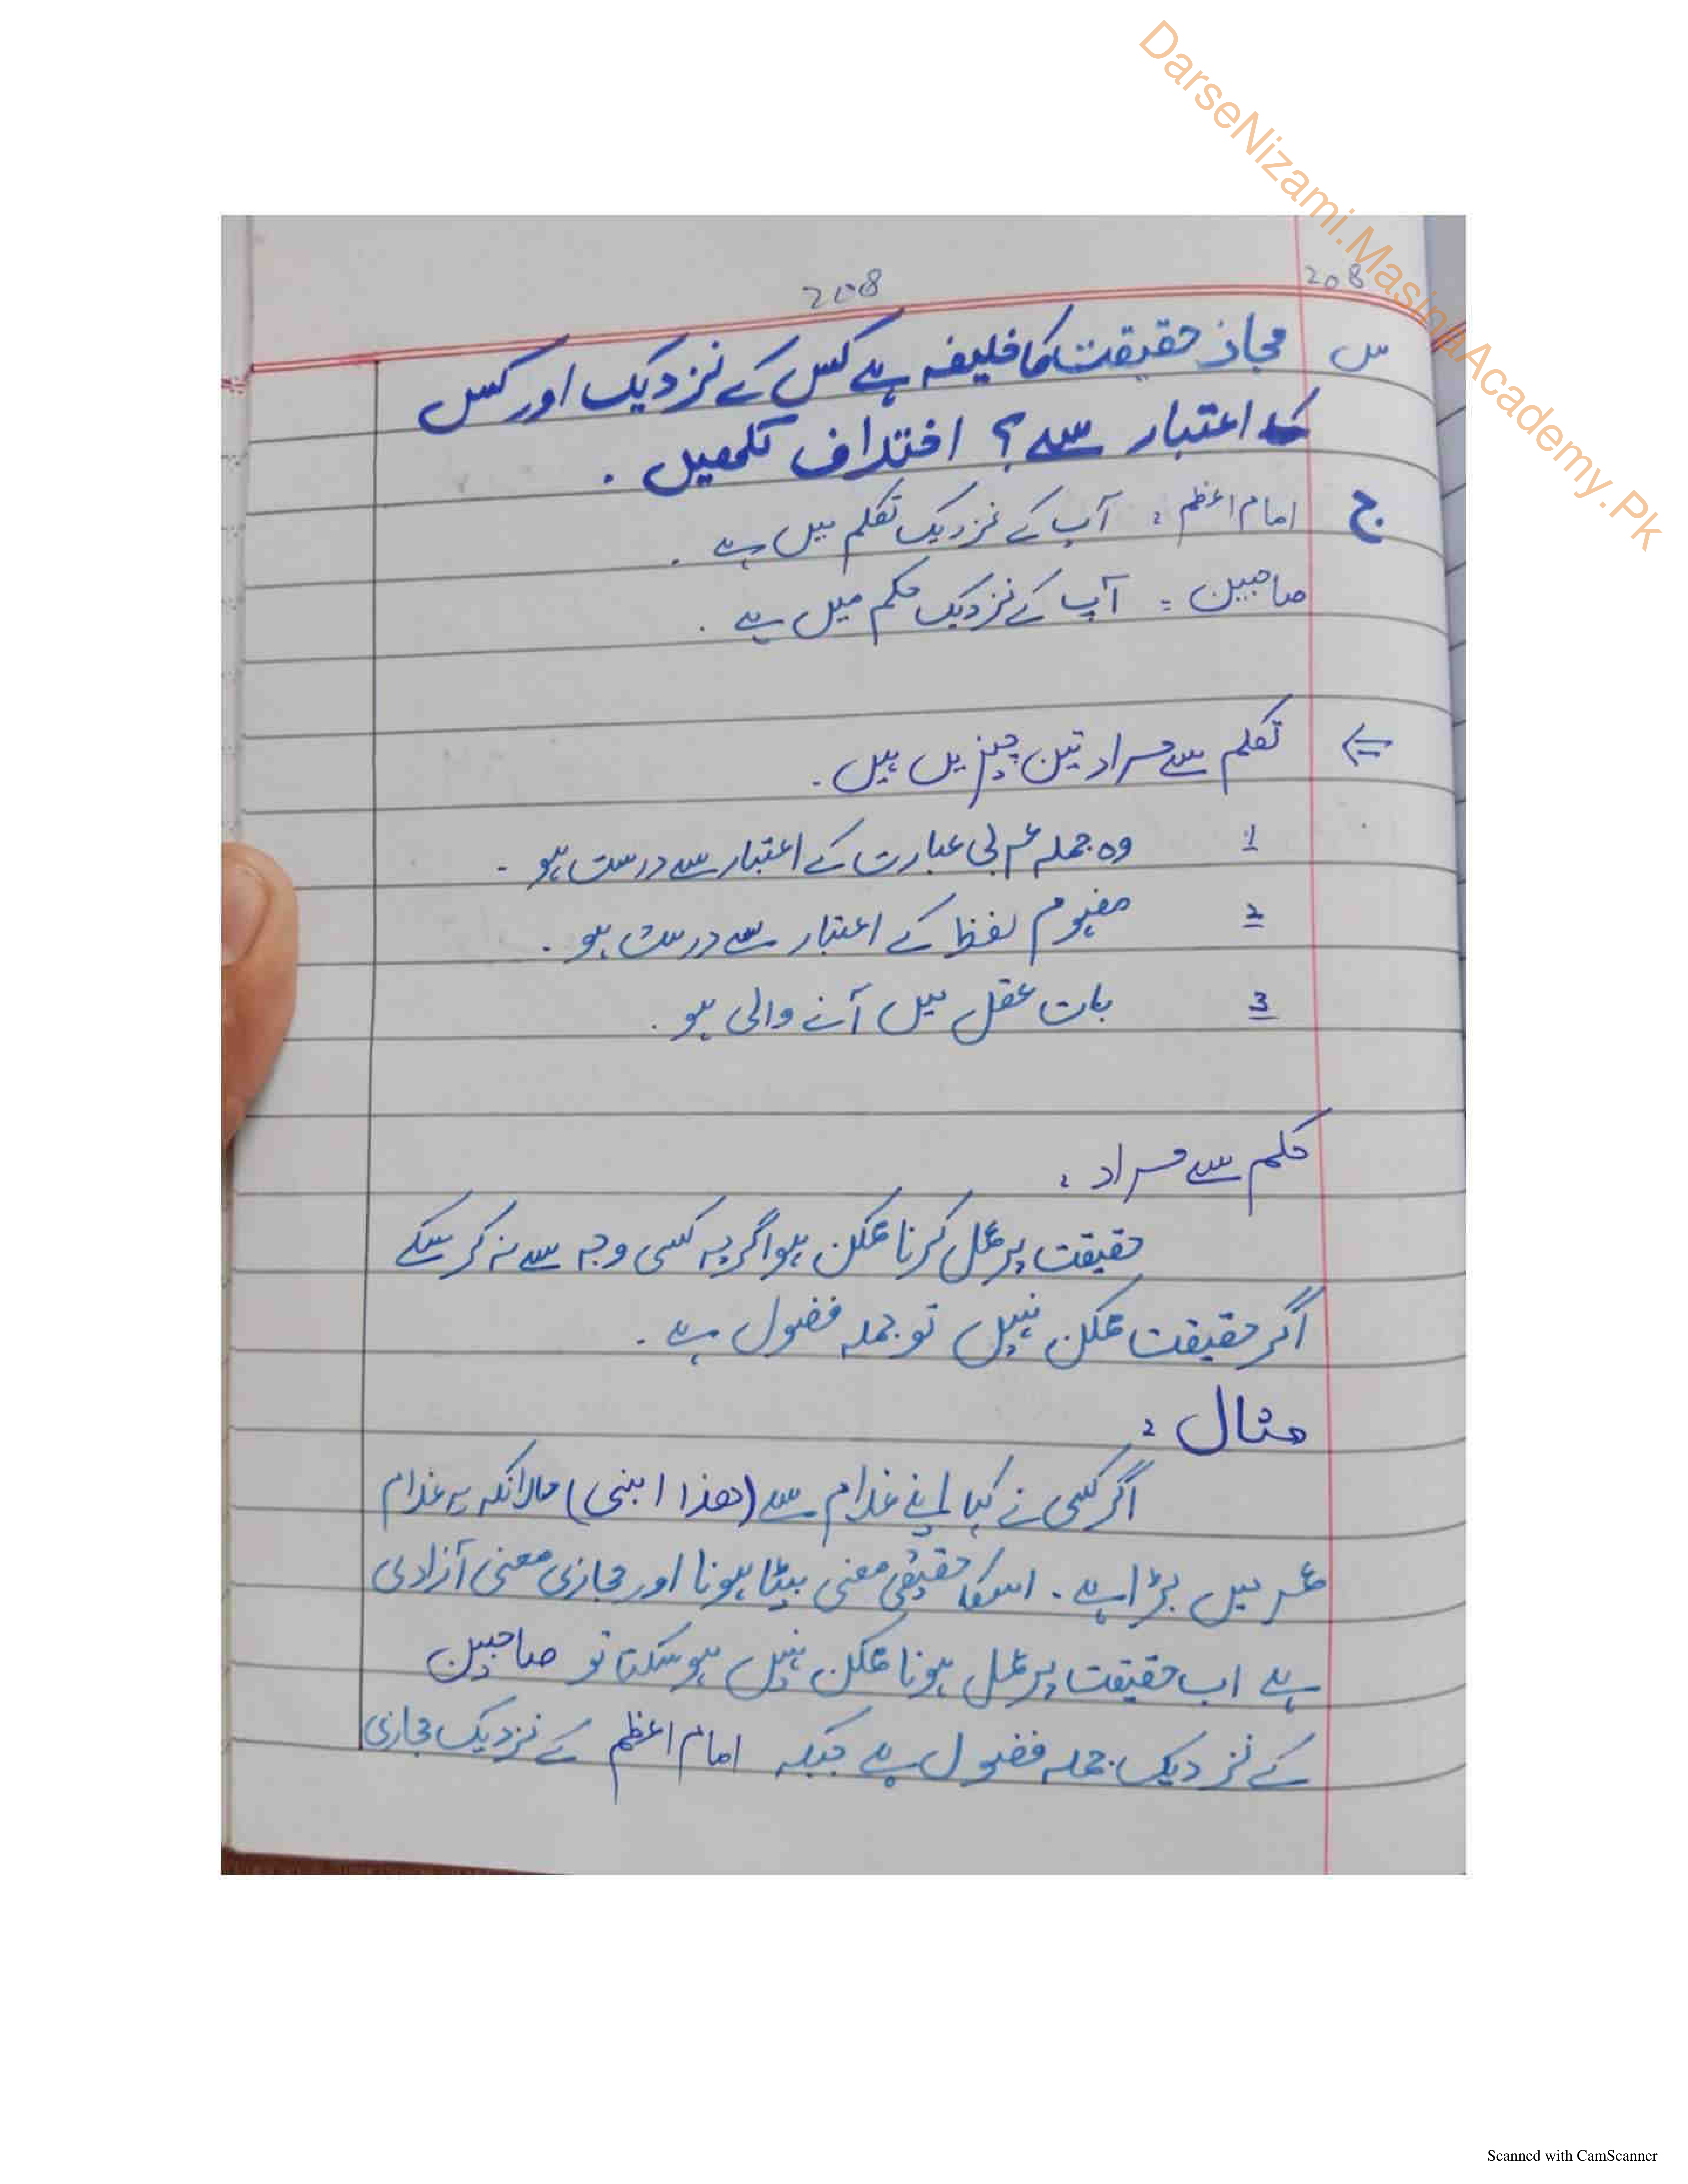 DarseNizami.MashalAcademy.Pk
208
208
س مجاز حقیقت کا خلیفہ ہے کس کے نزدیک اور کس
کے اعتبار سے؟ اختلاف لکھیں۔
ج امام اعظم : آپ کے نزدیک تکلم میں ہے۔
صاحبین = آپ کے نزدیک حکم میں ہے۔
⇐ تکلم سے مراد تین چیزیں ہیں۔
1 وہ جملہ عربی عبارت کے اعتبار سے درست ہو۔
2 مفہوم لفظ کے اعتبار سے درست ہو۔
3 بات عقل میں آنے والی ہو۔
حکم سے مراد :
حقیقت پر عمل کرنا ممکن ہو اگرچہ کسی وجہ سے نہ کر سکے
اگر حقیقت ممکن نہیں تو جملہ فضول ہے۔
مثال :
اگر کسی نے کہا اپنے غلام سے (ھذا ابنی) حالانکہ یہ غلام
عمر میں بڑا ہے۔ اسکا حقیقی معنی بیٹا ہونا اور مجازی معنی آزادی
ہے اب حقیقت پر عمل ہونا ممکن نہیں ہو سکتا تو صاحبین
کے نزدیک جملہ فضول ہے جبکہ امام اعظم کے نزدیک مجازی
Scanned with CamScanner